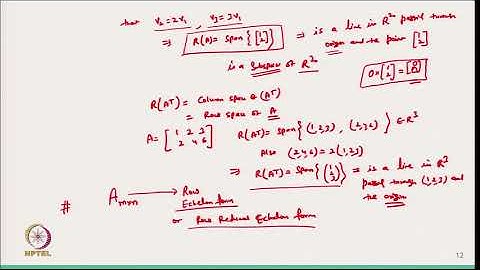 that v₂=2v₁, v₃=3v₁
⇒ R(A)= Span {[1 2]} ⇒ is a line in R² passes through
origin and the point [1 2]
is a Subspace of R²
0×[1 2]=[0 0]
R(Aᵀ) = Column span of (Aᵀ)
= Row span of A
A= [1 2 3
2 4 6] R(Aᵀ)= Span {(1,2,3), (2,4,6)} ∈ R³
Also (2,4,6)=2(1,2,3)
⇒ R(Aᵀ)= Span {(1 2 3)} ⇒ is a line in R³
passes through (1,2,3) and
the origin
# Aₘₓₙ → Row
Echelon form
or Row Reduced Echelon form
NPTEL
12